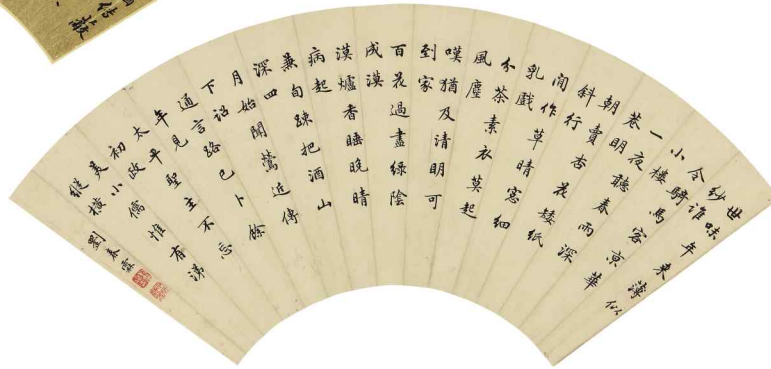 世味年来薄似
紗誰
令騎馬客京華
小樓
一夜聽春雨深
巷明
朝賣杏花矮紙
斜行
閒作草晴窓細
乳戲
分茶素衣莫起
風塵
嘆猶及清明可
到家
百花過盡綠陰
成漠
漠爐香睡晚晴
病起
兼旬疎把酒山
深四
月始聞鶯近傳
下詔
通言路已卜餘
年見
太平聖主不忘
初政
美小儒惟有涕
縱橫
劉春霖